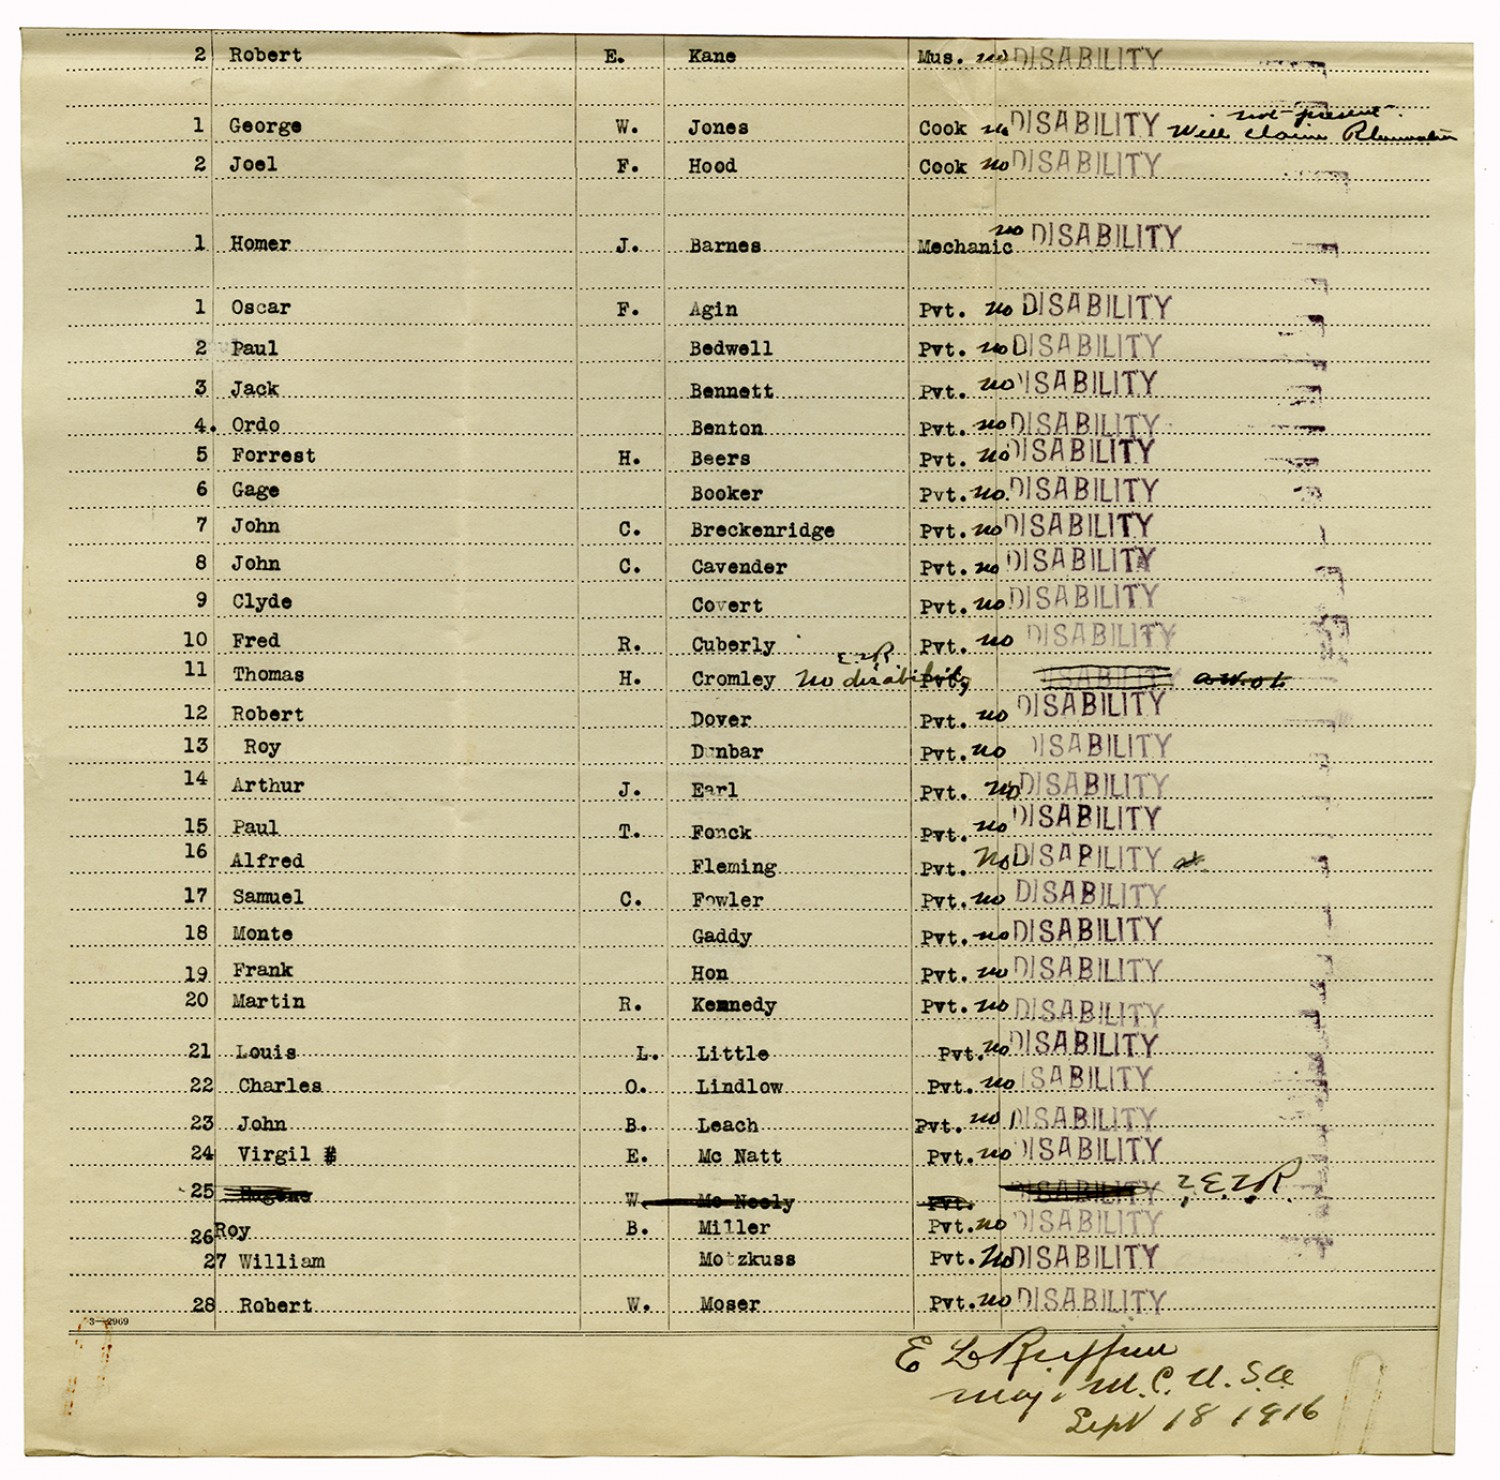 2 Robert E. Kane Mus. no DISABILITY
not present
1 George W. Jones Cook no DISABILITY Will claim Rheumatism
2 Joel F. Hood Cook no DISABILITY
1 Homer J. Barnes Mechanic no DISABILITY
1 Oscar F. Agin Pvt. no DISABILITY
2 Paul Bedwell Pvt. no DISABILITY
3 Jack Bennett Pvt. no DISABILITY
4. Ordo Benton Pvt. no DISABILITY
5 Forrest H. Beers Pvt. no DISABILITY
6 Gage Booker Pvt. no DISABILITY
7 John C. Breckenridge Pvt. no DISABILITY
8 John C. Cavender Pvt. no DISABILITY
9 Clyde Covert Pvt. no DISABILITY
10 Fred R. Cuberly Pvt. no DISABILITY
11 Thomas H. Cromley no disability Pvt. DISABILITY a.w.o.l.
12 Robert Dover Pvt. no DISABILITY
13 Roy Dunbar Pvt. no DISABILITY
14 Arthur J. Earl Pvt. no DISABILITY
15 Paul T. Fonck Pvt. no DISABILITY
16 Alfred Fleming Pvt. No DISABILITY
17 Samuel C. Fowler Pvt. no DISABILITY
18 Monte Gaddy Pvt. no DISABILITY
19 Frank Hon Pvt. no DISABILITY
20 Martin R. Kennedy Pvt. no DISABILITY
21 Louis L. Little Pvt. no DISABILITY
22 Charles O. Lindlow Pvt. no DISABILITY
23 John B. Leach Pvt. no DISABILITY
24 Virgil E. Mc Natt Pvt. no DISABILITY
25 Eugene W. Mc Neely Pvt. DISABILITY
26 Roy B. Miller Pvt. no DISABILITY
27 William Motzkuss Pvt. No DISABILITY
28 Robert W. Moser Pvt. no DISABILITY
3—2969
E L Ruffner
Maj. M.C. U.S.A.
Sept 18 1916